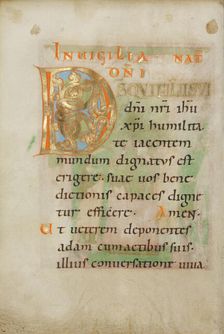 IN VIGILIA NAT
DNI
D
dni nri ihu
xpi humilita
te iacentem
mundum dignatus est
erigere. suae vos bene
dictionis capaces digne
tur efficere. Amen.
Ut veterem deponentes
adam cum actibus suis.
illius conversatione